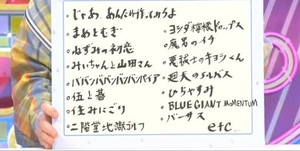 じゃあ、あんたが作ってみろよ
まめとむぎ
ねずみの初恋
みいちゃんと山田さん
ババンババンバンバンパイア
伍と碁
住みにごり
二階堂地獄ゴルフ
ヨシダ檸檬ドロップス
魔男のイチ
竜送りのイサギ
廻天のアルバス
ひゃくえむ
BLUE GIANT MOMENTUM
バーサス
etc...